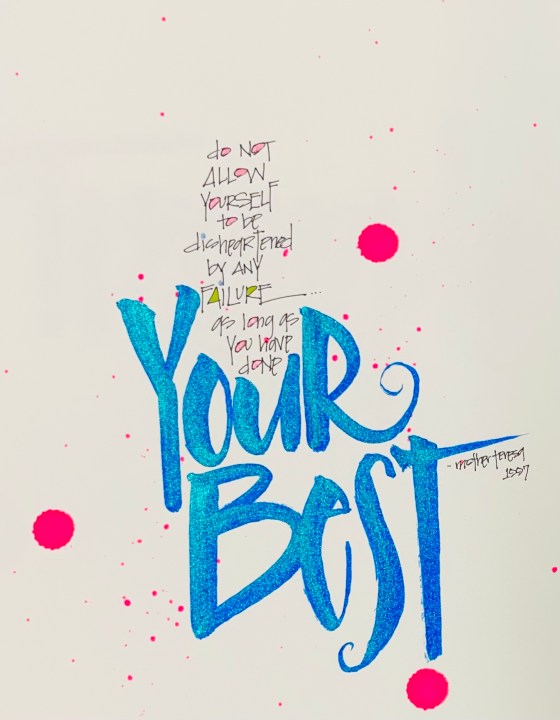 do NOT
ALLOW
YOURSELF
to be
disheartened
by ANY
FAILURE...
as long as
you have
done
YOUR
BEST
- mother teresa
1997